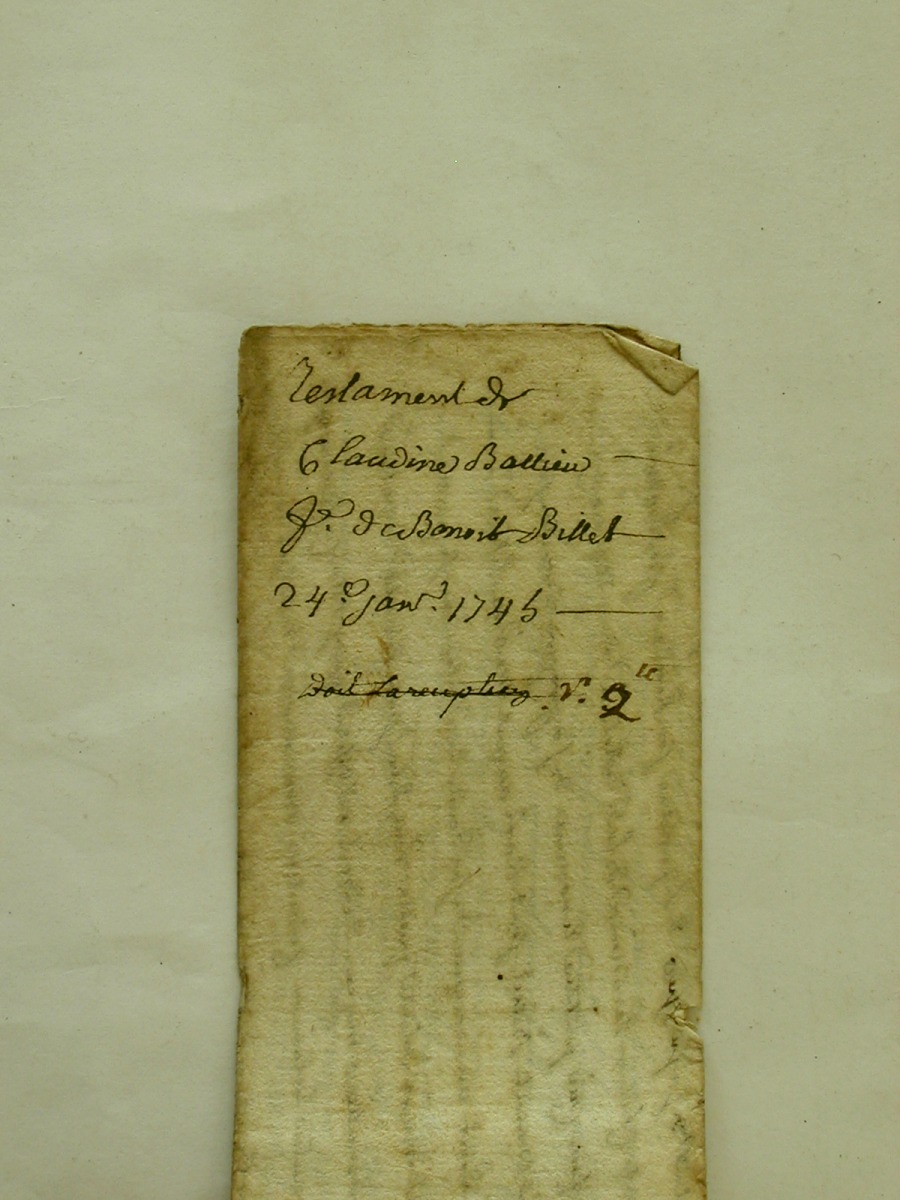 Testament de
Claudine Ballieu
fe. de Benoit Billet
24e. janv. 1745
Doit La reception. Vs. 2 lt